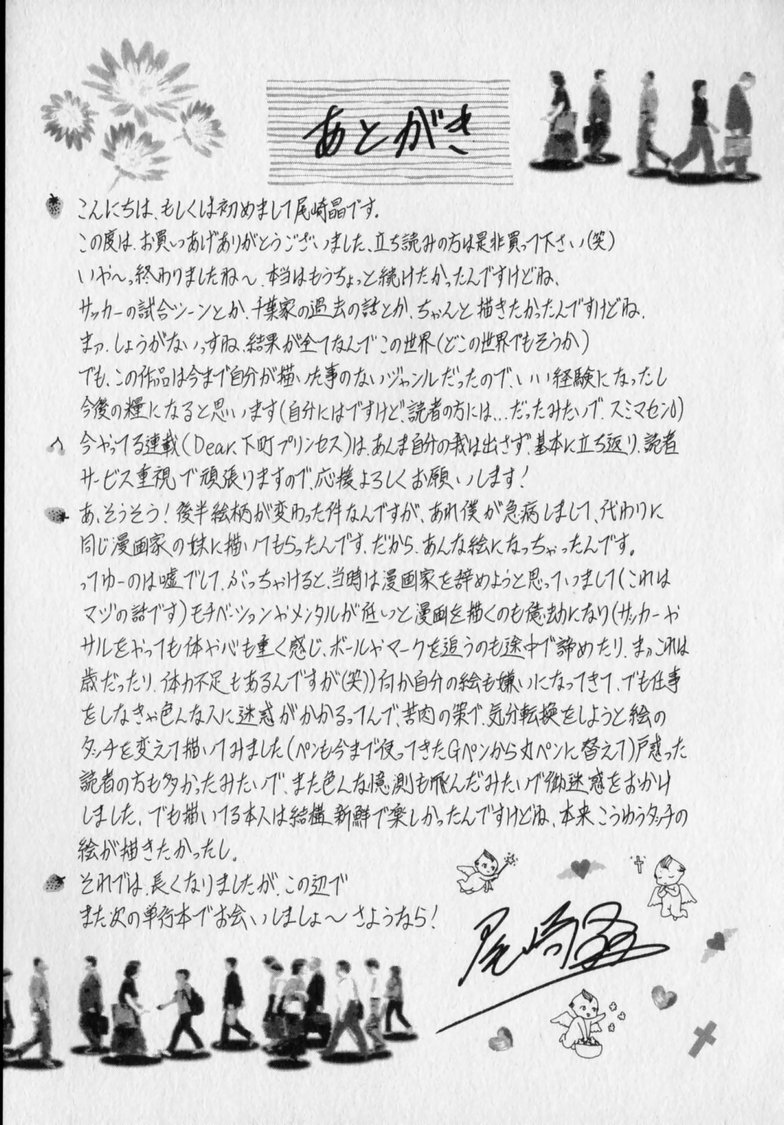 あとがき
こんにちは、もしくは初めまして尾崎晶です。
この度は、お買いあげありがとうございました、立ち読みの方は是非買って下さい(笑)
いや〜っ終わりましたね〜、本当はもうちょっと続けたかったんですけどね、
サッカーの試合シーンとか、千葉家の過去の話とか、ちゃんと描きたかったんですけどね、
まァ、しょうがないっすね、結果が全てなんでこの世界(どこの世界でもそうか)
でも、この作品は今まで自分が描いた事のないジャンルだったので、いい経験になったし
今後の糧になると思います(自分にはですけど、読者の方には…だったみたいで、スミマセン)
今やってる連載(Dear、下町プリンセス)は、あんま自分の我は出さず、基本に立ち返り、読者
サービス重視で頑張りますので、応援よろしくお願いします!
あ、そうそう!後半絵柄が変わった件なんですが、あれ僕が急病しまして、代わりに
同じ漫画家の妹に描いてもらったんです、だから、あんな絵になっちゃったんです。
ってゆーのは嘘でして、ぶっちゃけると、当時は漫画家を辞めようと思っていまして(これは
マジの話です)モチベーションやメンタルが低いと漫画を描くのも億劫になり(サッカーや
サルをやっても体や心も重く感じ、ボールやマークを追うのも途中で諦めたり、まァこれは
歳だったり、体力不足もあるんですが(笑))何か自分の絵も嫌いになってきて、でも仕事
をしなきゃ色んな人に迷惑がかかるってんで、苦肉の策で、気分転換をしようと絵の
タッチを変えて描いてみました(ペンも今まで使ってきたGペンから丸ペンに替えて)戸惑った
読者の方も多かったみたいで、また色んな憶測も飛んだみたいで御迷惑をおかけ
しました、でも描いてる本人は結構、新鮮で楽しかったんですけどね、本来こうゆうタッチの
絵が描きたかったし。
それでは、長くなりましたが、この辺で
また次の単行本でお会いしましょ〜さようなら!
尾崎晶